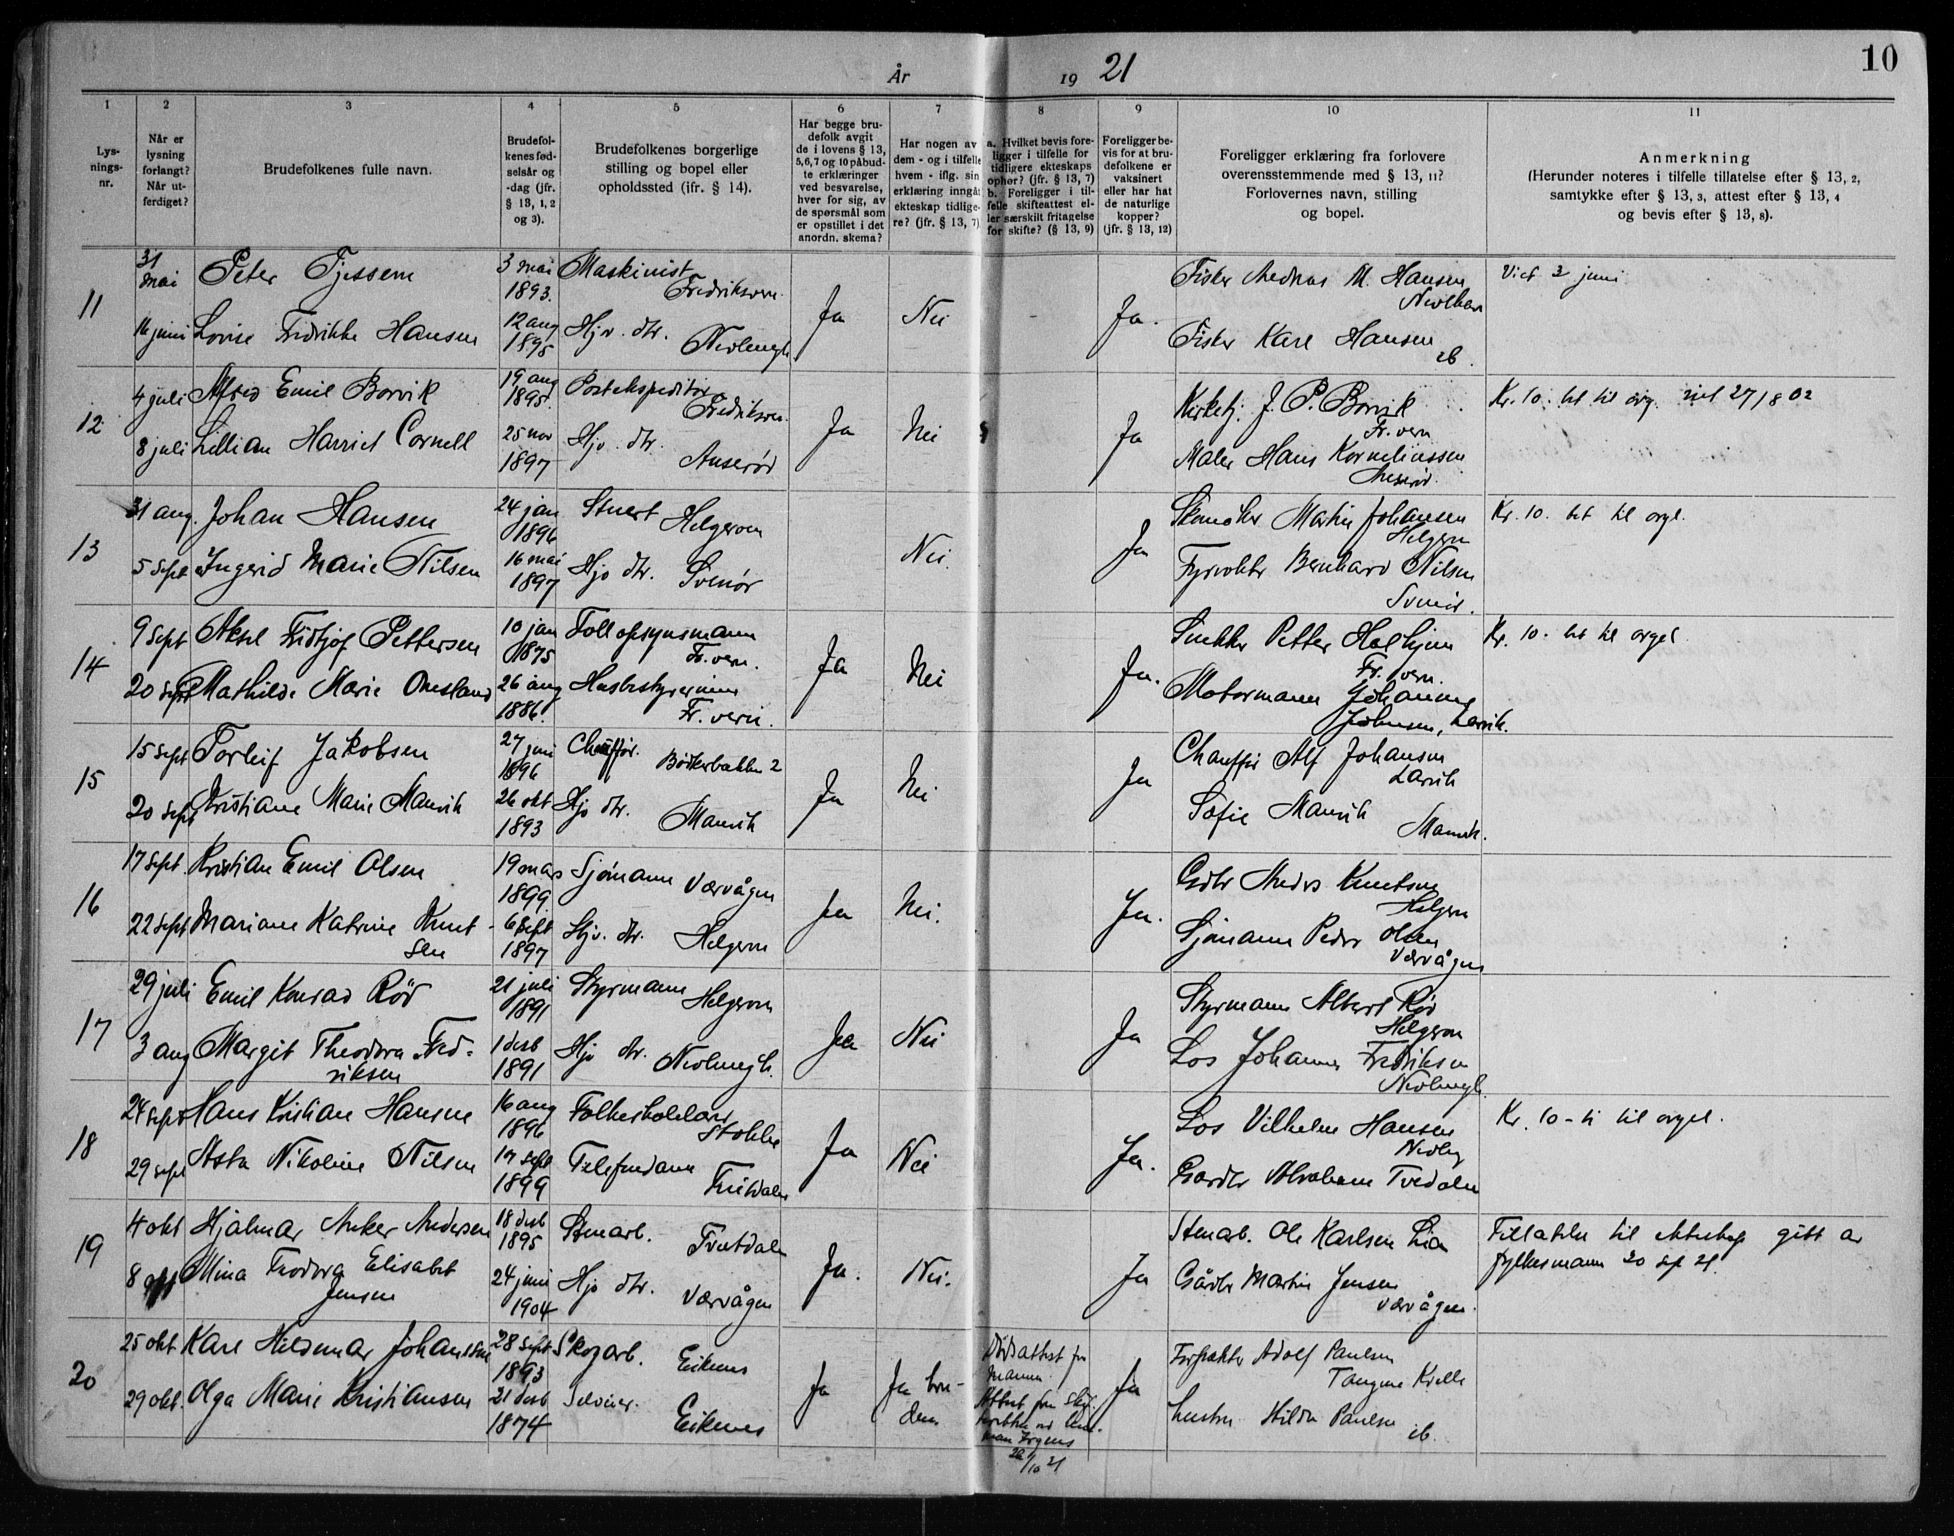 År 1921
10
1 2 3 4 5 6 7 8 9 10 11
Lys-
nings-
nr.
Når er
lysning
forlangt?
Når ut-
ferdiget?
Brudefolkenes fulle navn.
Brudefol-
kenes fød-
selsår og
-dag (jfr.
§ 13, 1, 2
og 3).
Brudefolkenes borgerlige
stilling og bopel eller
opholdssted (ifr. § 14).
Har begge bru-
defolk avgit
de i lovens § 13,
5, 6, 7 og 10 påbud-
te erklæringer
ved besvarelse,
hver for sig, av
de spørsmål som
er opstillet i det
anordn. skema?
Har nogen av
dem - og i tilfelle
hvem - iflg. sin
erklæring inngåt
ekteskap tidlige-
re? (jfr. § 13, 7)
a. Hvilket bevis fore-
ligger i tilfelle for
tidligere ekteskaps
ophør? (jfr. § 13, 7)
b. Foreligger i til-
felle skifteattest el-
ler særskilt fritagelse
for skifte? (§ 13, 9)
Foreligger be-
vis for at bru-
defolkene er
vaksinert
eller har hat
de naturlige
kopper?
(jfr. § 13, 12)
Foreligger erklæring fra forlovere
overensstemmende med § 13, 11?
Forlovernes navn, stilling
og bopel.
Anmerkning
(Herunder noteres i tilfelle tillatelse efter § 13, 2,
samtykke efter § 13, 3, attest efter § 13, 4
og bevis efter § 13, 8).
11
31 mai Peter Tjessem 3 mai 1893. Maskinist Fredriksvern
16 juni Lovise Fredrikke Hansen 12 aug 1895 Hjv. dtr. Nevlungh
Ja Nei Ja.
Fisker Andreas M. Hansen
Fisker Karl Hansen ib.
Viet 2 juni
12
4 juli Alfred Emil Borvik 19 aug 1895. Postekspeditør Fredriksvern
8 juli Lillian Harriet Cornell 25 nov 1897 Hjv. dtr. Anserød
Ja Nei Ja
Kirketj. J. P. Borvik Fr. vern
Maler Hans Korneliussen Anserød.
Kr. 10. bet til org. 27/8
13
31 aug. Johan Hansen 24 jan 1896 Stuert Helgeroa
5 sept Ingerid Marie Nilsen 16 mai 1897 Hjv dtr. Svenør
Nei. Ja
Skomaker Martin Johansen Helgeroa
Fyrvokter Bernhard Nilsen Svenør.
Kr. 10. bet til orgl.
14
9 sept Aksel Fridtjof Pettersen 10 jan 1875 Tollopsynsmann Fr. vern.
20 sept Mathilde Marie Onesland 26 aug 1886. Husbestyrerinne Fr. vern.
Ja Nei Ja.
Snekker Petter Holhjem Fr. vern.
Motormann Johannes Johnsen, Larvik.
Kr. 10. bet til orgel
15
15 sept Torleif Jakobsen 27 juni 1896 Chauffør. Bøkerbakken 2
20 sept Kristiane Marie Manvik 26 okt 1893 Hjv dtr. Manvik
Ja Nei Ja
Chauffør Alf Johansen Larvik
Sofie Manvik Manvik.
16
17 sept. Kristian Emil Olsen 19 mars 1899. Sjømann Værvågen
22 sept Mariane Katrine Knut-
sen 6 sept 1897 Hjv. dtr. Helgeroa
Ja Nei. Ja.
Gdbr Anders Knutsen Helgeroa
Sjømann Peder Olsen Værvågen
17
29 juli Emil Konrad Rød 21 juli 1891 Styrmann Helgeroa
3 aug Margit Theodora Fred-
riksen 1 desb 1891 Hjv dtr. Nevlungh.
Ja Nei Ja
Styrmann Albert Rød Helgeroa
Los Johannes Fredriksen Nevlungh.
18
24 sept Hans Kristian Hansen 16 aug 1896 Folkeskolelærer Stokke
29 sept Asta Nikoline Nilsen 17 sept 1899 Telefondame Tvetdalen
Ja Nei Ja.
Los Vilhelm Hansen Nevlungh
Gardbr Abraham Tvedalen
Kr. 10 - ti til orgel.
19
4 okt Hjalmar Anker Andersen 18 desb 1895 Stenarb. Tvetdalen
8 Mina Teodora Elisabet
Jensen 24 juni 1904 Hjv dtr. Værvågen
Ja. Nei. Ja
Stenarb. Ole Karlsen Lia
Gårdbr Martin Jensen Værvågen.
Tillatelse til ekteskap gitt av
fylkesmann 20 sp 21.
20
25 okt Karl Hildemar Johansen 28 sept 1893 Skogarb. Eikenes
29 okt. Olga Marie Kristiansen 21 desb 1874 Eikenes
Ja Ja bru-
den
Dødsattest for
mannen.
Attest fra
28/10 21
Ja
Forpakter Adolf Paulsen
Tangene Kjelle
hustru Hilda Paulsen ib.